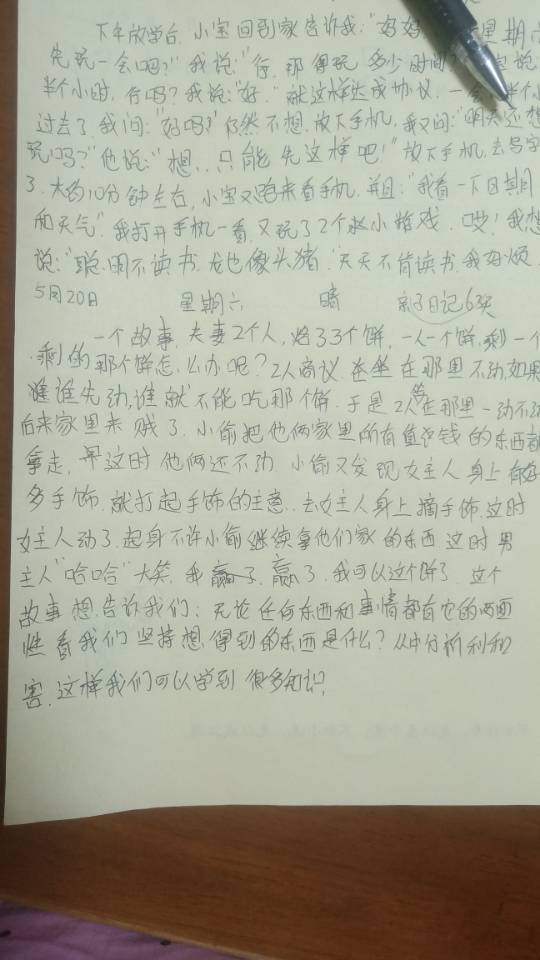 下午放学后,小宝回到家告诉我:"妈妈 星期六
先玩一会吗?"我说:"行,那得玩多少时间? 说
半个小时,行吗?我说:"好。"就这样达成协议,一会 半个小
过去了,我问:"好吗?"仍然不想放下手机,我又问:"明天还想
玩吗?"他说:"想,只能先这样吧!"放下手机,去写字
了.大约10分钟左右,小宝又跑来看手机,并且:"我看一下日期
的天气".我打开手机一看,又玩了2个 小游戏.哎!我想
说:"聪明不读书,龙也像头猪.天天不肯读书,我好烦.
5月20日 星期六 晴 亲子日记63天
一个故事,夫妻2个人,烙了3个饼,一人一个饼,剩一个
剩的那个饼怎么办呢?2人商议.坐在那里不动如果
谁先动,谁就不能吃那个饼.于是2人坐在那里一动不动
后来家里来贼了.小偷把他俩家里所有值钱的东西都
拿走,这时他俩还不动.小偷又发现女主人身上有好
多手饰.就打起手饰的主意.去女主人身上摘手饰.这时
女主人动了.起身不许小偷继续拿他们家的东西.这时男
主人"哈哈"大笑,我赢了.赢了.我可以这个饼了.这个
故事想告诉我们:无论任何东西和事情都有它的两面
性看我们坚持想得到的东西是什么?从中分析利和
害.这样我们可以学到很多知识.